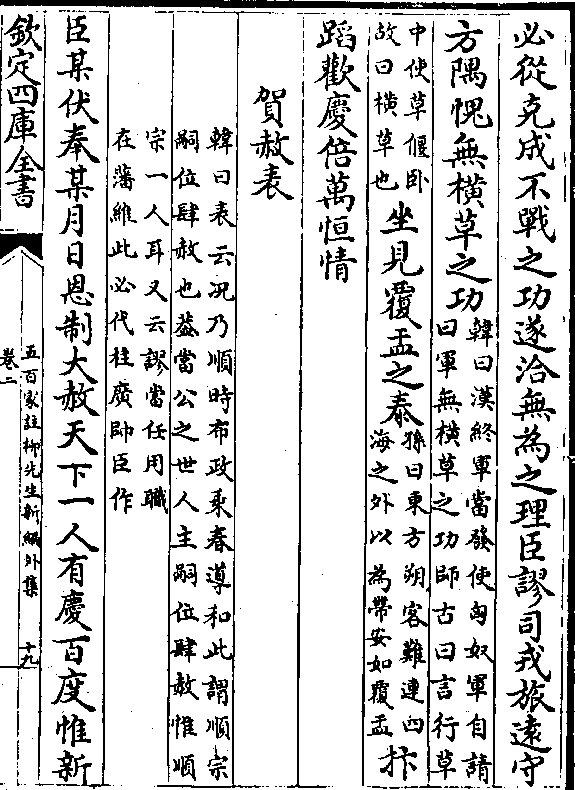 必從克成不戰之功遂洽無為之理臣謬司戎旅遠守
方隅愧無橫草之功韓曰漢終軍當發使匈奴軍自請曰軍無橫草之功師古曰言行草
中使草偃卧故曰橫草也坐見覆盂之泰孫曰東方朔客難連四海之外以為帶安如覆盂抃
蹈歡慶倍萬恒情
賀赦表
韓曰表云況乃順時布政乘春導和此謂順宗
嗣位肆赦也葢當公之世人主嗣位肆赦惟順
宗一人耳又云謬當任用職
在藩維此必代桂廣帥臣作
臣某伏奉某月日恩制大赦天下一人有慶百度惟新
欽定四庫全書
五百家註柳先生新編外集
卷二
十九